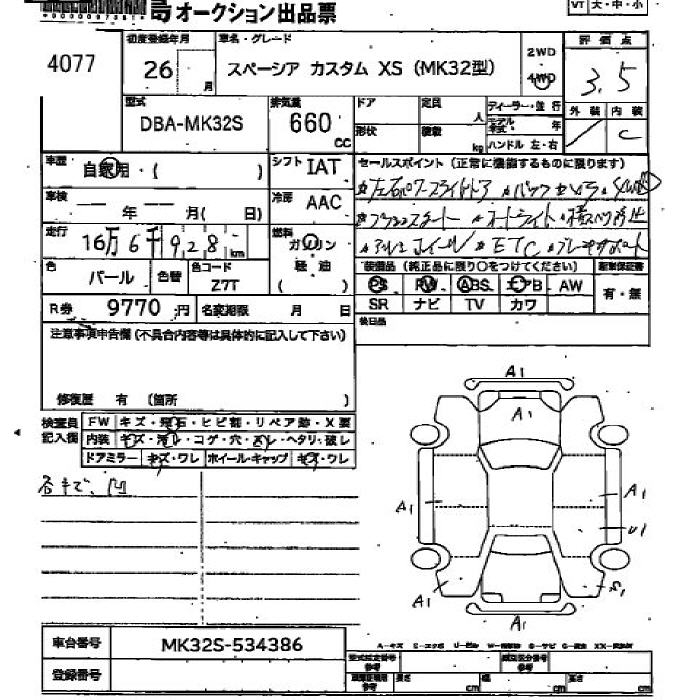 オークション出品票
VT 大・中・小
4077
初度登録年月
26 月
車名・グレード
スペーシア カスタム XS (MK32型)
2WD
4WD
評価点
3.5
外装 内装
C
型式
DBA-MK32S
排気量
660 CC
ドア
定員 人
形状
積載 kg
ディーラー・並行
モデル年式 年
ハンドル 左・右
車歴
自家用・( )
シフト
IAT
セールスポイント (正常に機能するものに限ります)
車検
年 月( 日)
冷房
AAC
走行
16万6千928 km
燃料
ガソリン
軽油
( )
アルミホイール ETC ブレーキサポート
色
パール
色替
色コード
Z7T
装備品 (純正品に限り○をつけてください)
PS PW ABS エアB AW
SR ナビ TV カワ
新車保証書
有・無
R券 9770 円
名変期限 月 日
後日品
注意事項申告欄 (不具合内容等は具体的に記入して下さい)
修復歴 有 (箇所 )
検査員記入欄
FW キズ・飛石・ヒビ割・リペア跡・X要
内装 キズ・汚レ・コゲ・穴・スレ・ヘタリ・破レ
ドアミラー キズ・ワレ ホイール・キャップ キズ・ワレ
A1
A1
A1
A1
U1
A1
S1
A1
車台番号 MK32S-534386
登録番号
型式指定番号 参考
類別区分番号 参考
長さ cm
幅 cm
高さ cm